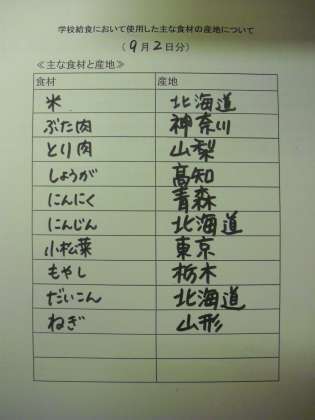 学校給食において使用した主な食材の産地について
(9月2日分)
≪主な食材と産地≫
食材 産地
米 北海道
ぶた肉 神奈川
とり肉 山梨
しょうが 高知
にんにく 青森
にんじん 北海道
小松菜 東京
もやし 栃木
だいこん 北海道
ねぎ 山形